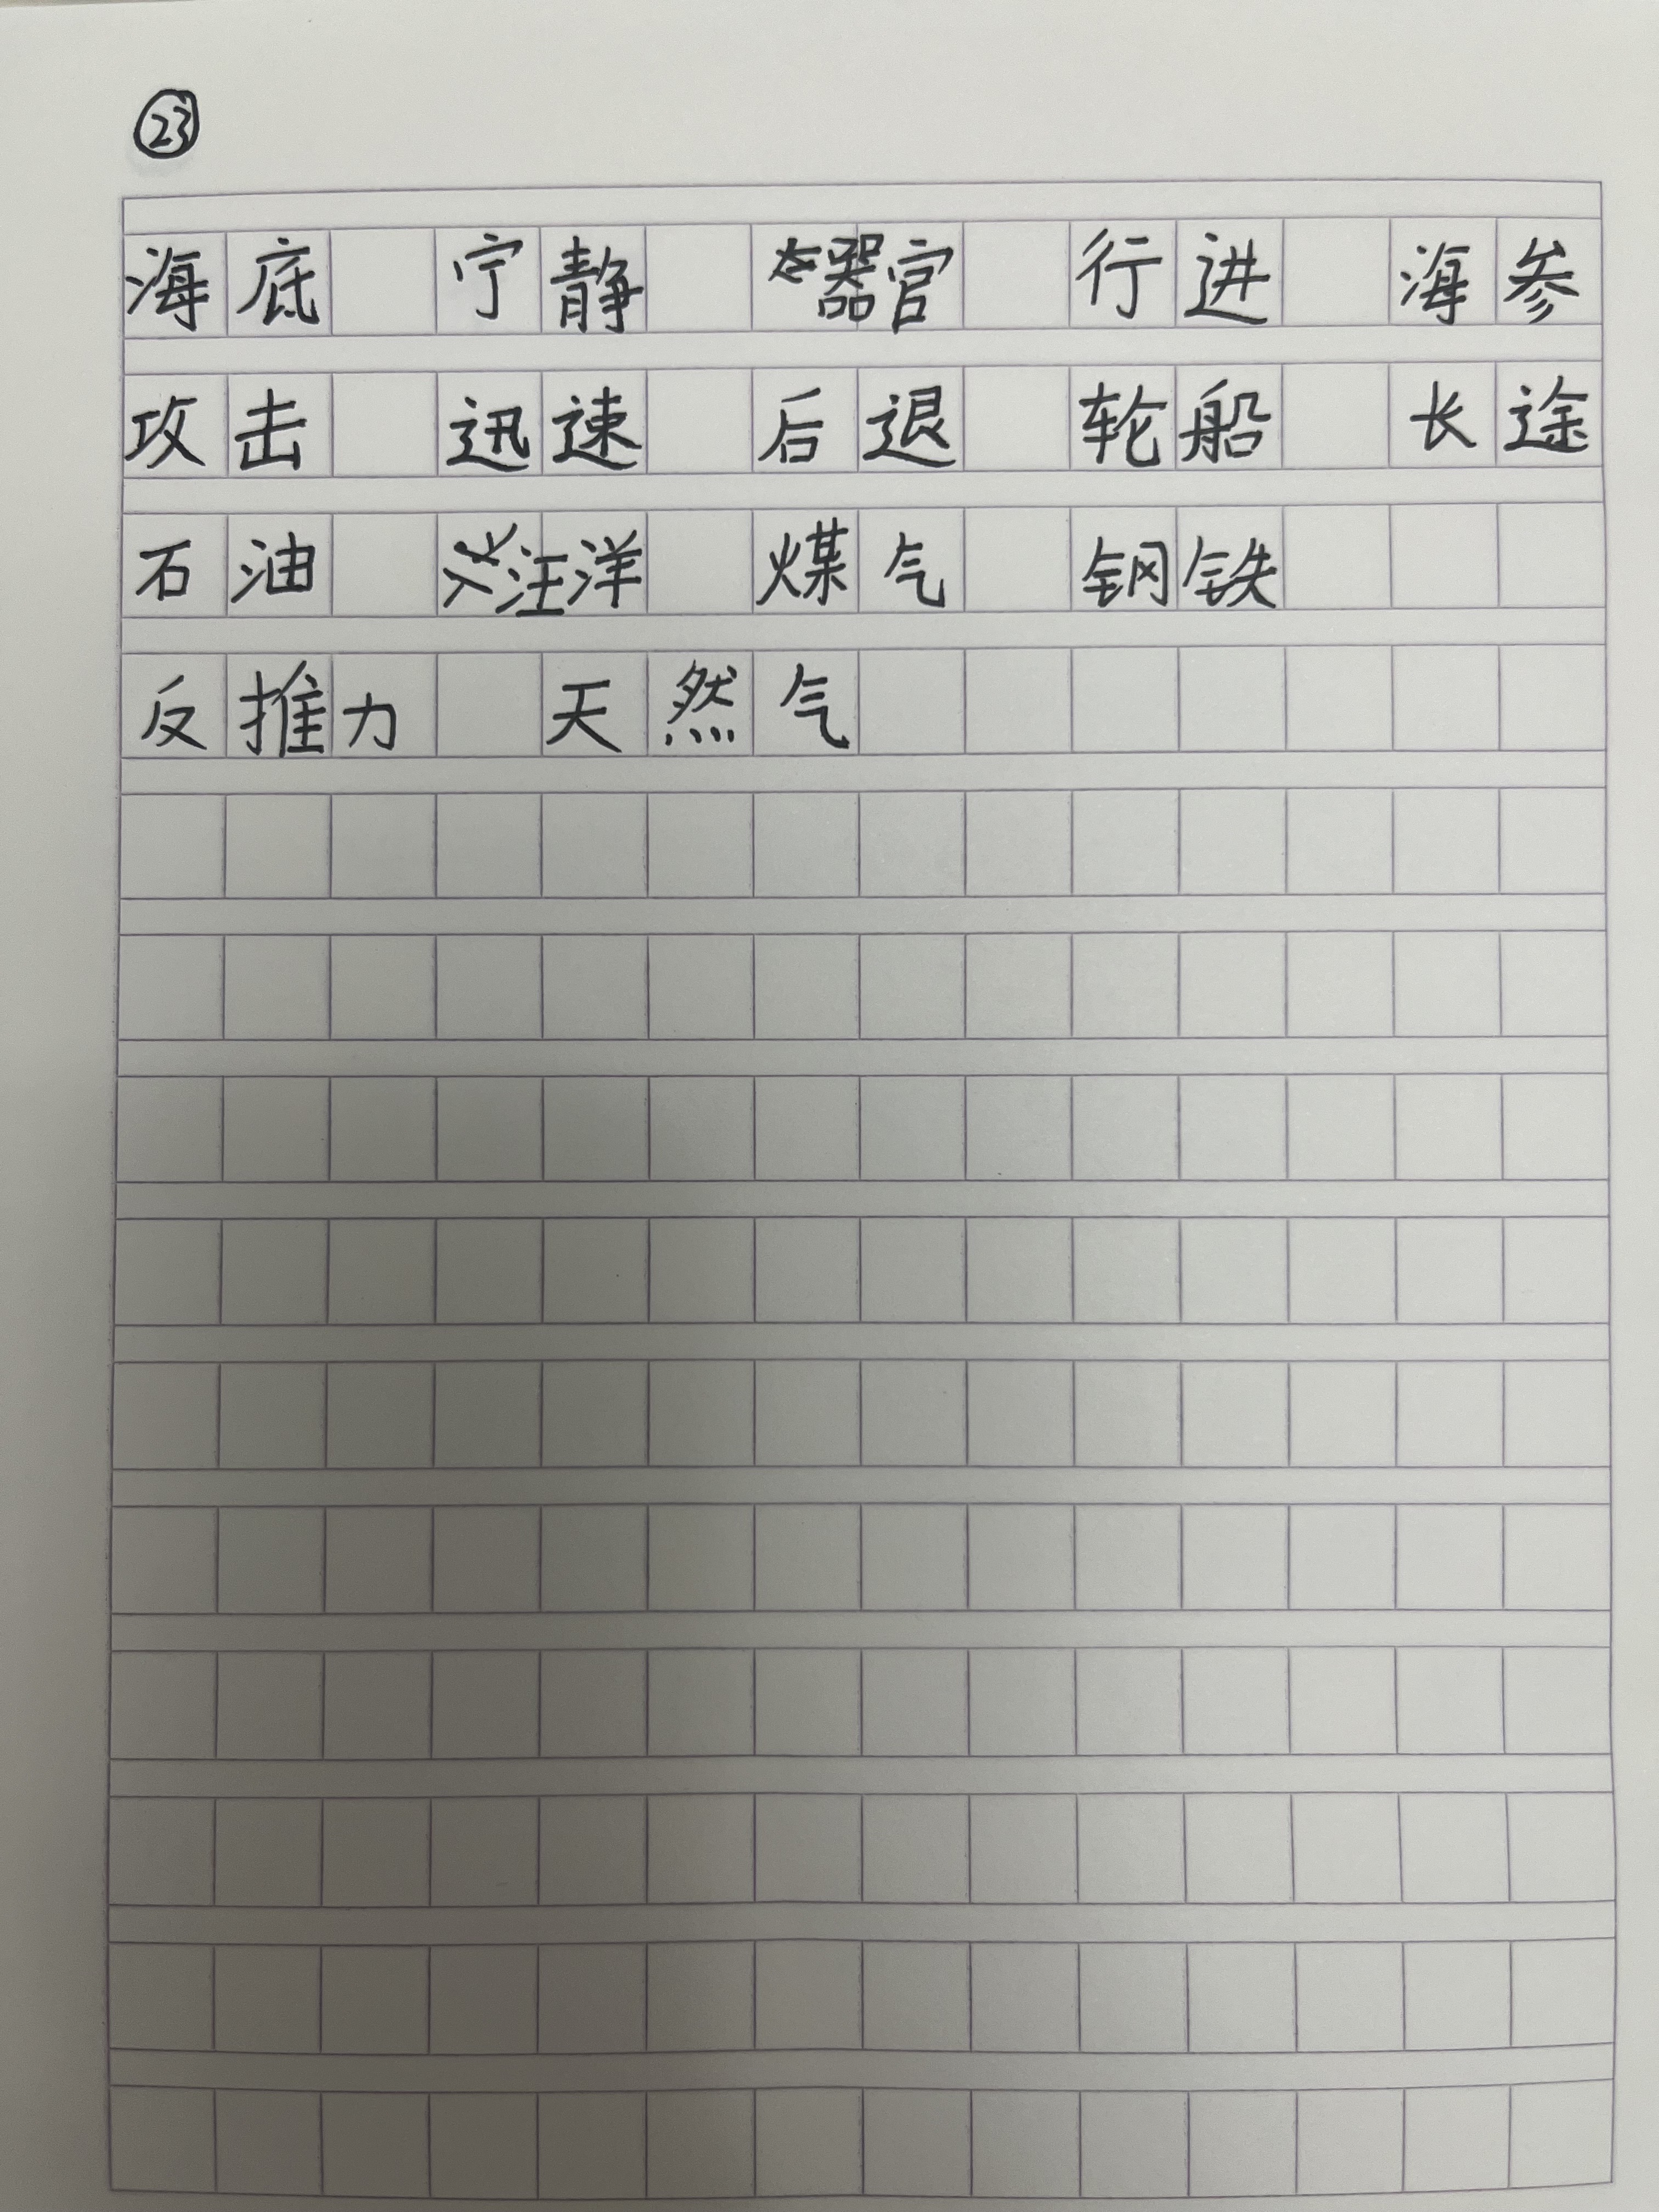 ㉓
海底 宁静 器官 行进 海参
攻击 迅速 后退 轮船 长途
石油 汪洋 煤气 钢铁
反推力 天然气